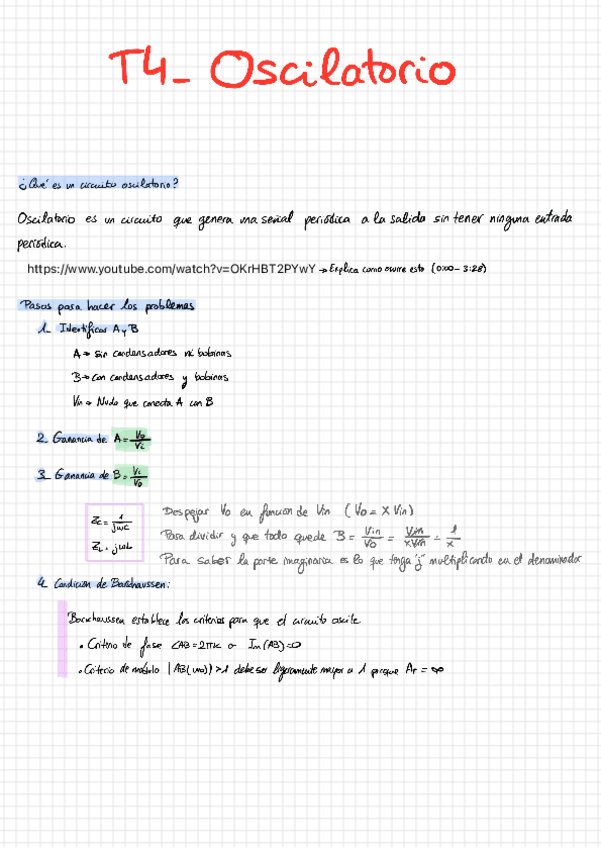 T4_ Oscilatorio
¿Qué es un circuito oscilatorio?
Oscilatorio es un circuito que genera una señal periódica a la salida sin tener ninguna entrada
periódica.
https://www.youtube.com/watch?v=OKrHBT2PYwY → Explica como ocurre esto (0:00 - 3:28)
Pasos para hacer los problemas
1_ Identificar A y B
A → Sin condensadores ni bobinas
B → Con condensadores y bobinas
Vin → Nudo que conecta A con B
2_ Ganancia de A = Vo/Vi
3_ Ganancia de B = Vi/Vo
Zc = 1/jωC
ZL = jωL
Despejar Vo en función de Vin (Vo = X Vin)
Para dividir y que todo quede B = Vin/Vo = Vin/XVin = 1/X
Para saber la parte imaginaria es lo que tenga "j" multiplicando en el denominador
4_ Condición de Barkhaussen:
Barkhaussen establece los criterios para que el circuito oscile
• Criterio de fase ∠AB = 2πk o Im(AB) = 0
• Criterio de módulo |AB(ωo)| > 1 debe ser ligeramente mayor a 1 porque Af = ∞